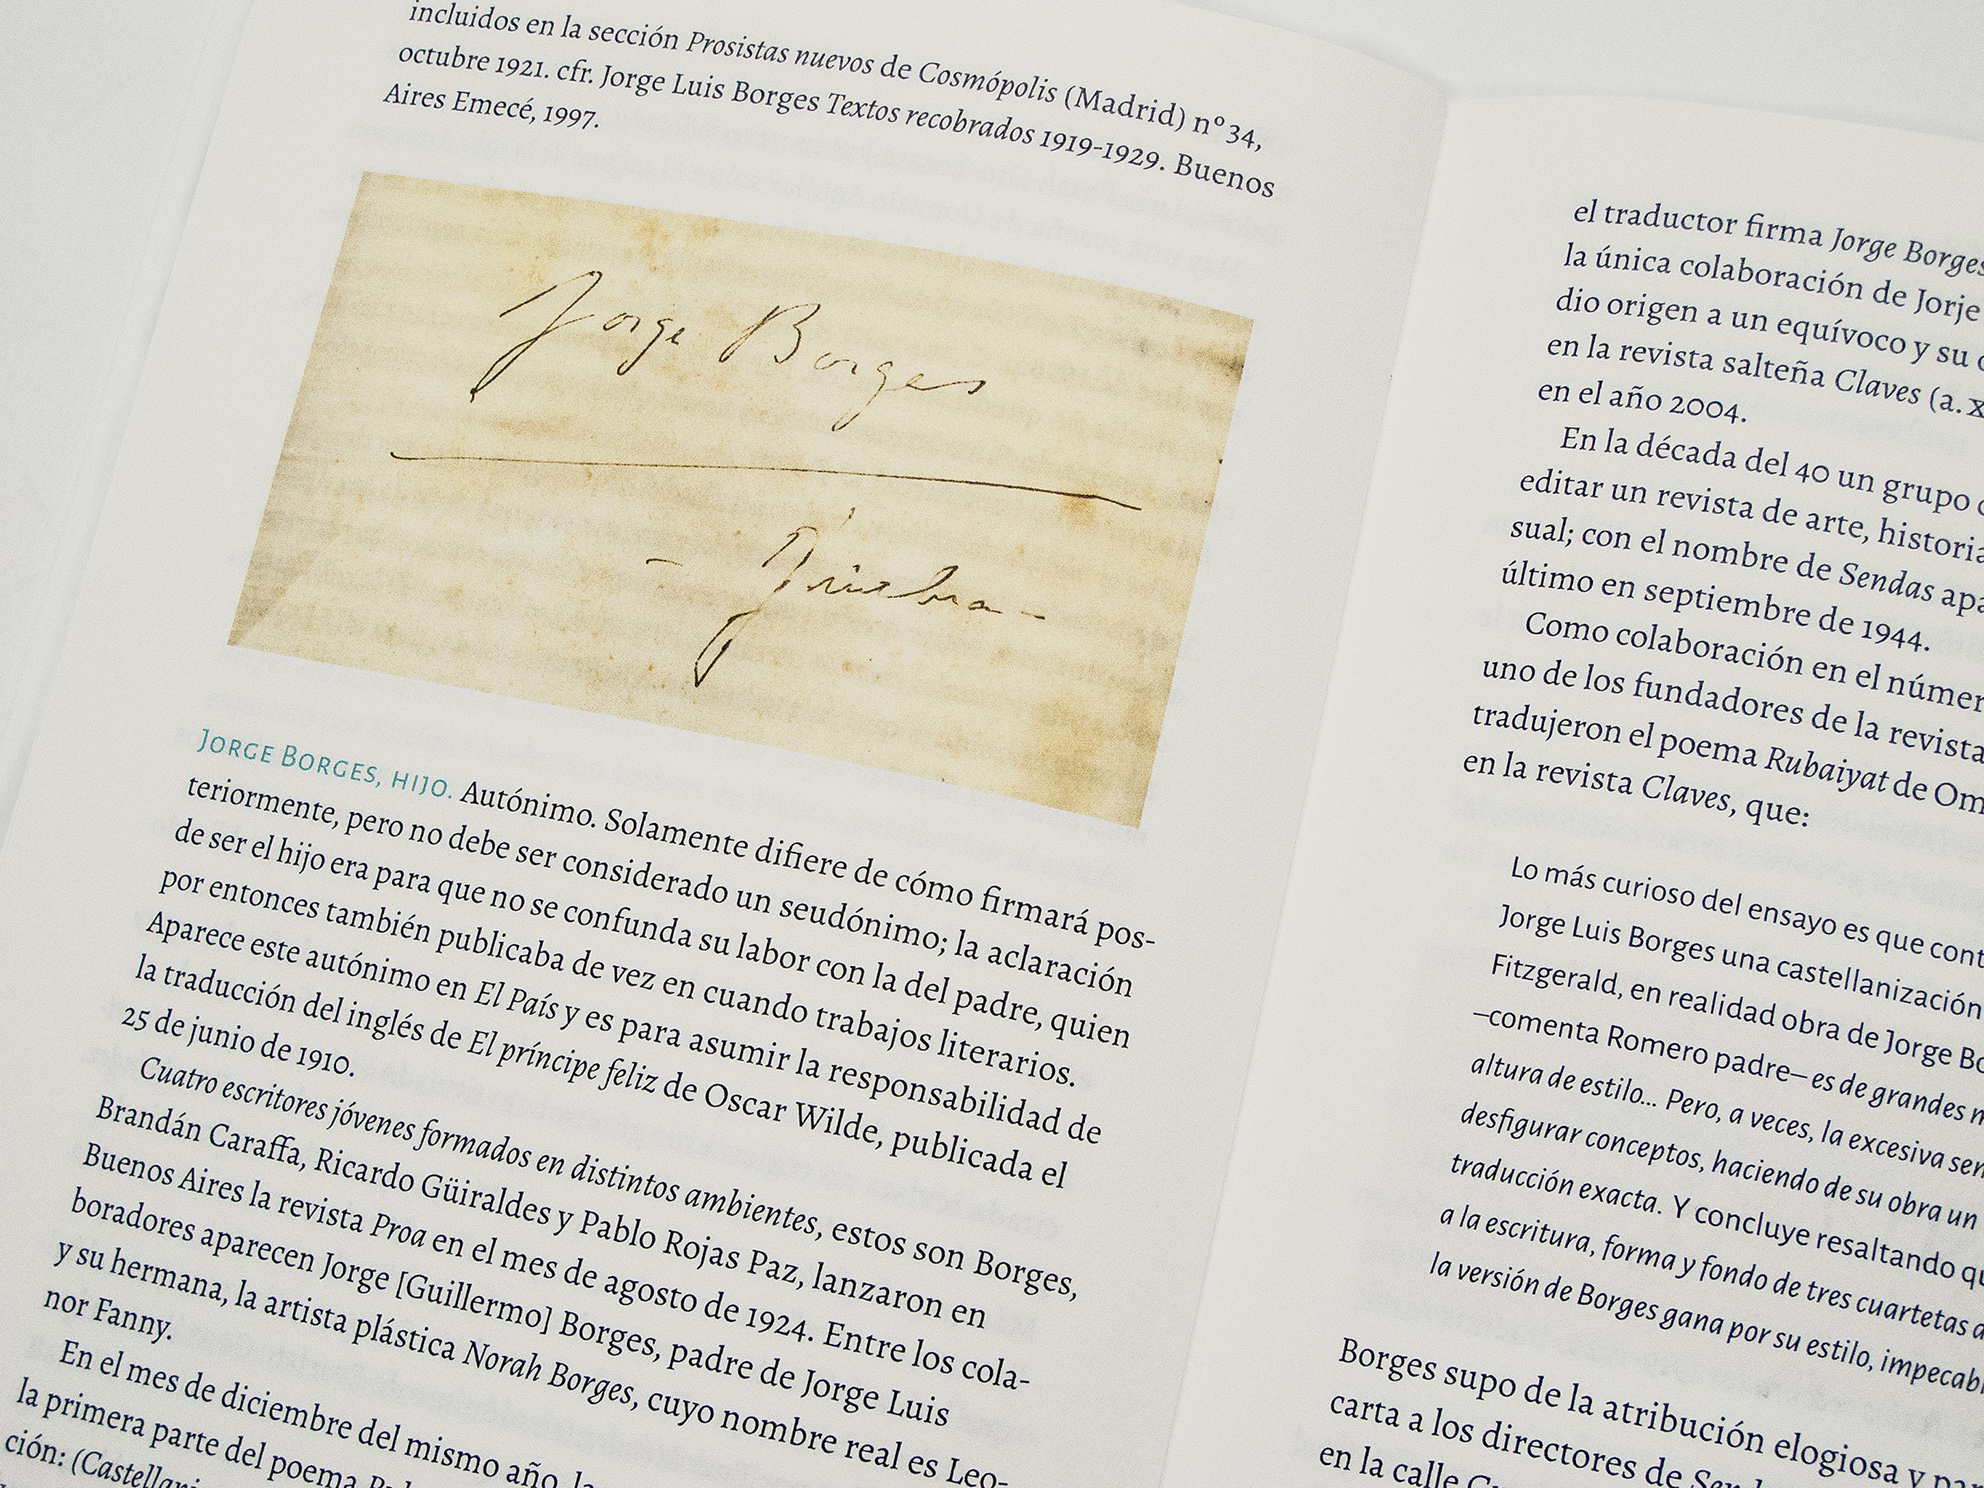 incluidos en la sección Prosistas nuevos de Cosmópolis (Madrid) nº 34,
octubre 1921. cfr. Jorge Luis Borges Textos recobrados 1919-1929. Buenos
Aires Emecé, 1997.
Jorge Borges
JORGE BORGES, HIJO. Autónimo. Solamente difiere de cómo firmará pos-
teriormente, pero no debe ser considerado un seudónimo; la aclaración
de ser el hijo era para que no se confunda su labor con la del padre, quien
por entonces también publicaba de vez en cuando trabajos literarios.
Aparece este autónimo en El País y es para asumir la responsabilidad de
la traducción del inglés de El príncipe feliz de Oscar Wilde, publicada el
25 de junio de 1910.
Cuatro escritores jóvenes formados en distintos ambientes, estos son Borges,
Brandán Caraffa, Ricardo Güiraldes y Pablo Rojas Paz, lanzaron en
Buenos Aires la revista Proa en el mes de agosto de 1924. Entre los cola-
boradores aparecen Jorge [Guillermo] Borges, padre de Jorge Luis
y su hermana, la artista plástica Norah Borges, cuyo nombre real es Leo-
nor Fanny.
En el mes de diciembre del mismo año,
la primera parte del poema
ción: (
el traductor firma Jorge Borges
la única colaboración de Jorje
dio origen a un equívoco y su
en la revista salteña Claves (a. X
en el año 2004.
En la década del 40 un grupo
editar un revista de arte, historia
sual; con el nombre de Sendas apa
último en septiembre de 1944.
Como colaboración en el númer
uno de los fundadores de la revista
tradujeron el poema Rubaiyat de Om
en la revista Claves, que:
Lo más curioso del ensayo es que cont
Jorge Luis Borges una castellanización
Fitzgerald, en realidad obra de Jorge Bo
–comenta Romero padre– es de grandes
altura de estilo... Pero, a veces, la excesiva
desfigurar conceptos, haciendo de su obra un
traducción exacta. Y concluye resaltando qu
a la escritura, forma y fondo de tres cuartetas
la versión de Borges gana por su estilo, impecab
Borges supo de la atribución elogiosa y
carta a los directores de
en la calle